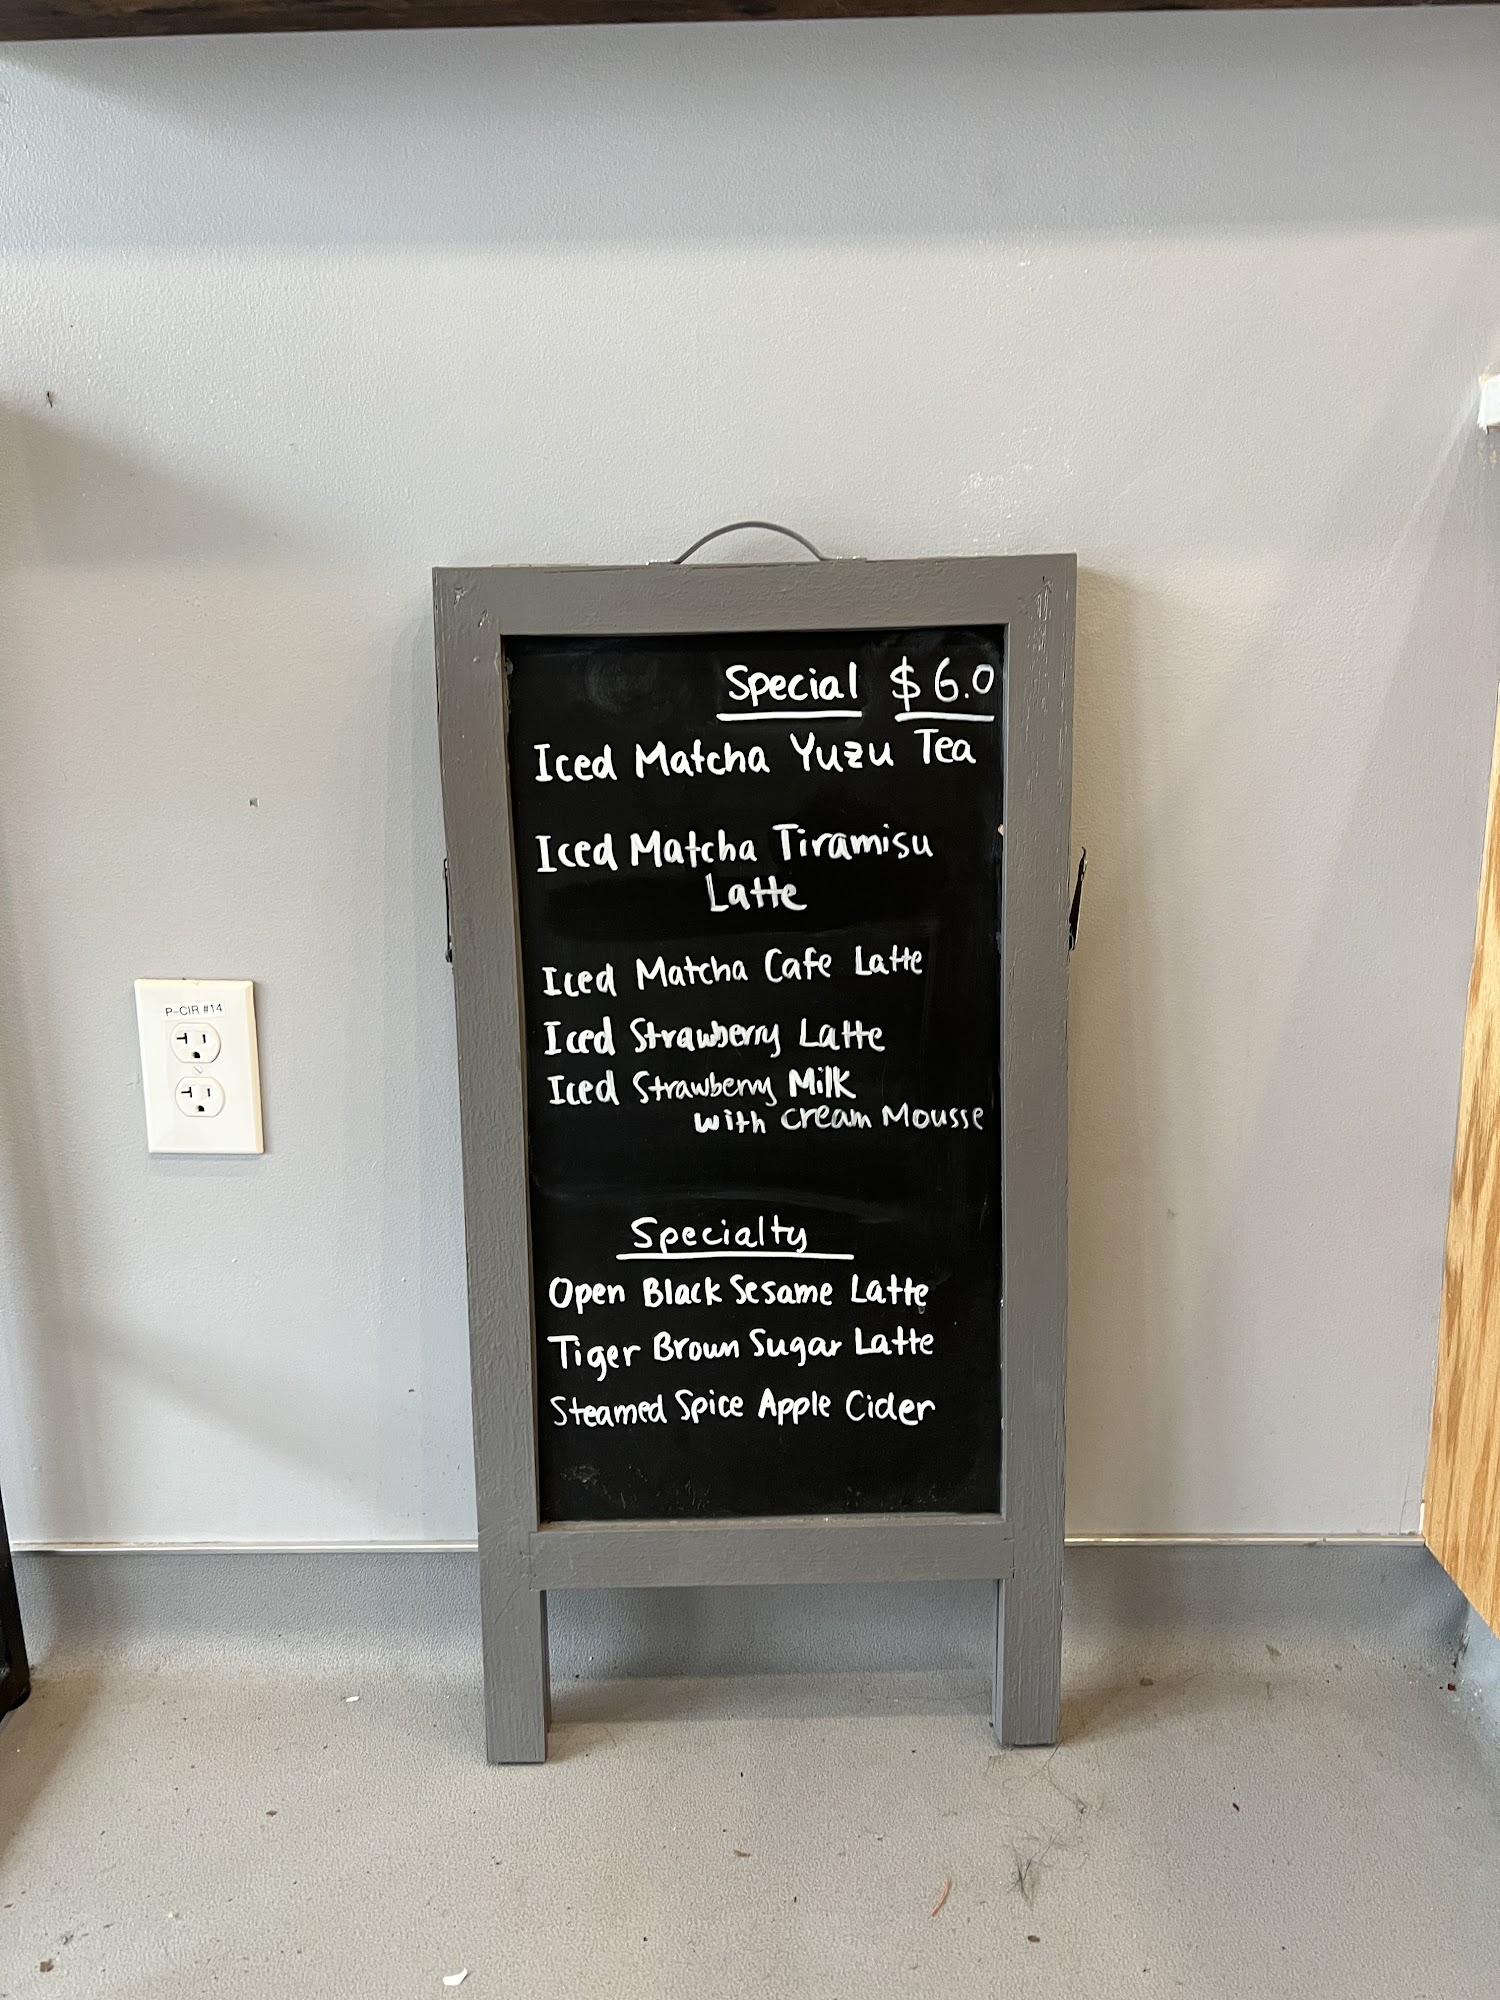 Special $6.0
Iced Matcha Yuzu Tea
Iced Matcha Tiramisu
Latte
Iced Matcha Cafe Latte
Iced Strawberry Latte
Iced Strawberry Milk
with cream Mousse
Specialty
Open Black Sesame Latte
Tiger Brown Sugar Latte
Steamed Spice Apple Cider
P-CIR #14